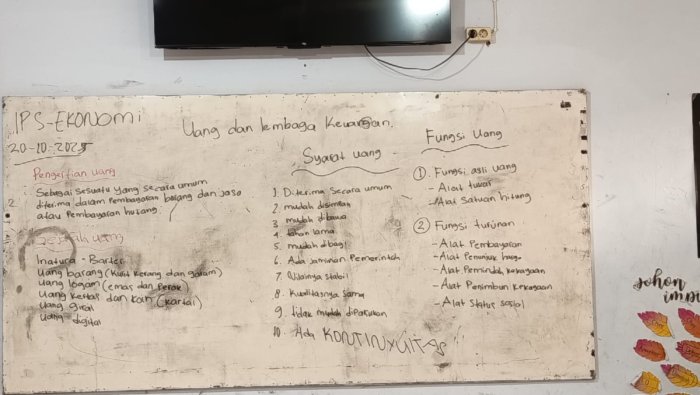 IPS-EKONOMI
20-10-2025
Uang dan lembaga Keuangan.
Pengertian uang
Sebagai sesuatu yang secara umum
diterima dalam Pembayaran barang dan jasa
atau Pembayaran hutang.
uang
Inatura - Barter
Uang barang (kulit kerang dan garam)
Uang logam (emas dan Perak)
Uang kertas dan koin (kartal)
Uang giral
Uang digital
Syarat uang
1. Diterima secara umum
2. mudah disimpan
3. mudah dibawa
4. tahan lama
5. mudah dibagi
6. Ada jaminan Pemerintah
7. Nilainya stabil
8. Kualitasnya sama
9. tidak mudah dipalsukan
10. Ada KONTINYUITAS
Fungsi Uang
① Fungsi asli uang
- Alat tukar
- Alat satuan hitung
② Fungsi turunan
- Alat Pembayaran
- Alat Penunjuk harga
- Alat Pemindah kekayaan
- Alat Penimbun kekayaan
- Alat Status sosial
pohon
impi